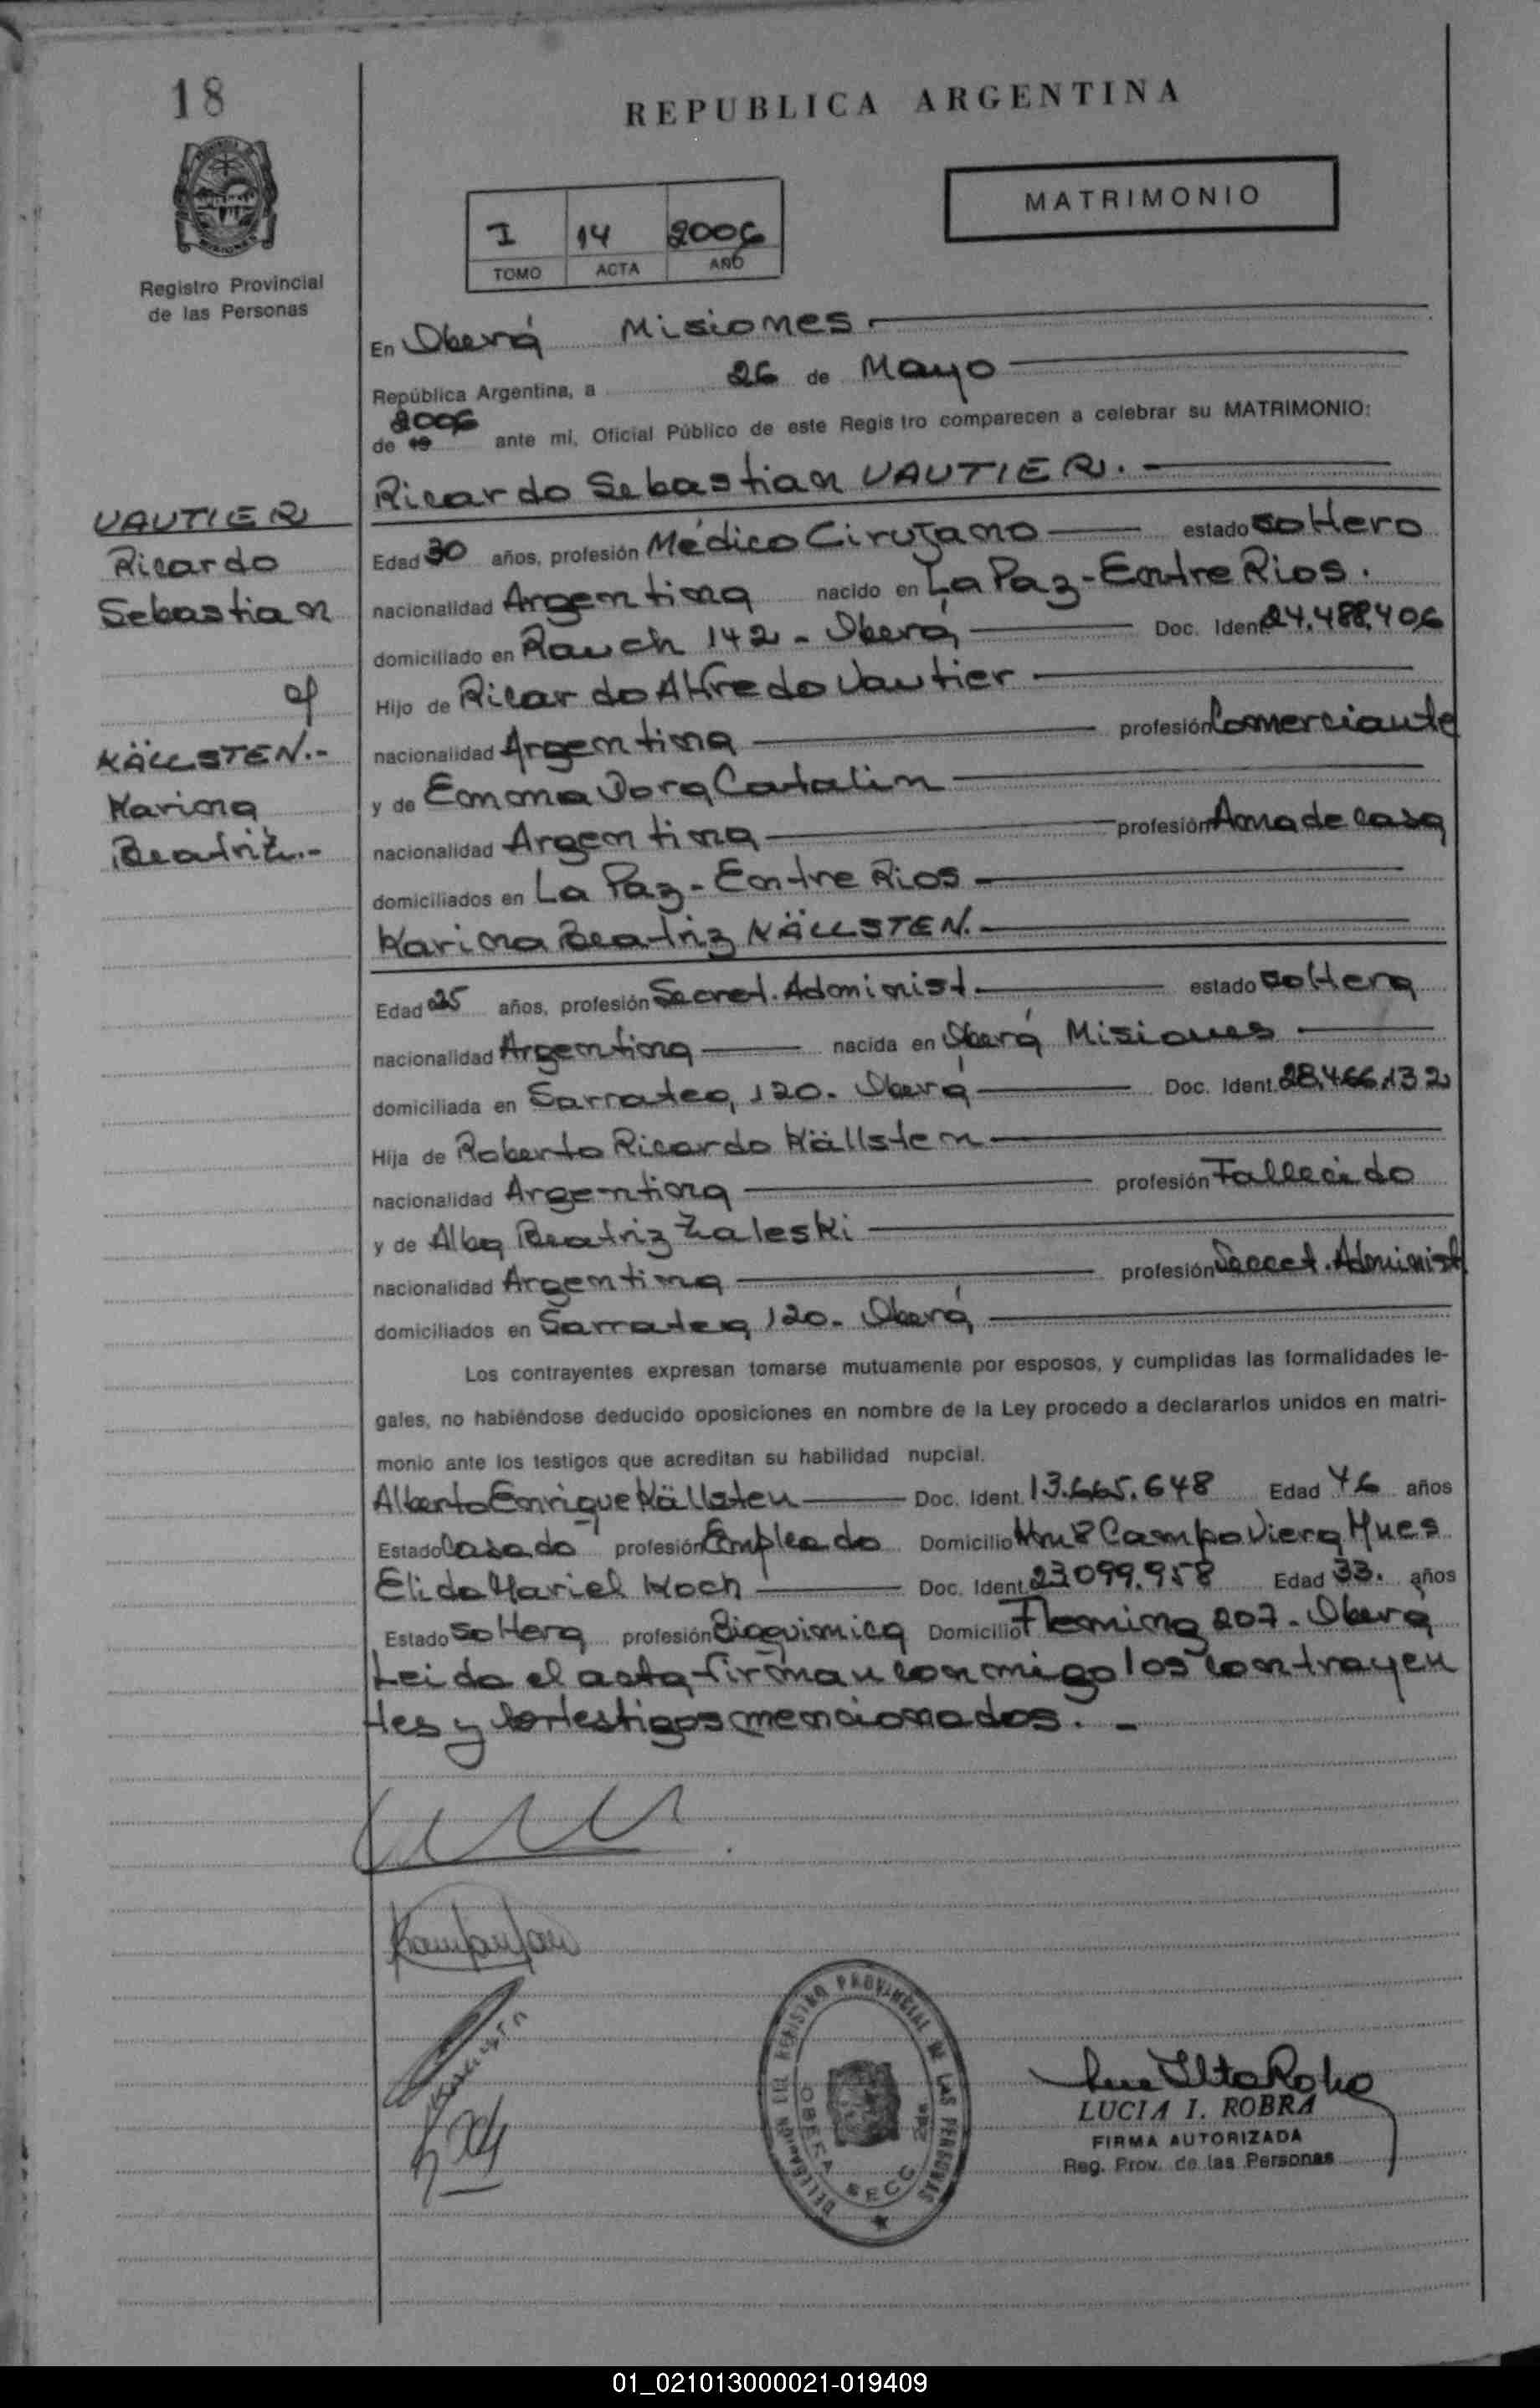 18
REPUBLICA ARGENTINA
MATRIMONIO
I 14 2006
TOMO ACTA AÑO
Registro Provincial
de las Personas
En Oberá Misiones.
República Argentina, a 26 de Mayo
2006
de 19 ante mi, Oficial Público de este Regis tro comparecen a celebrar su MATRIMONIO:
Ricardo Sebastian VAUTIER.
VAUTIER
Ricardo
Sebastian
KÄLLSTEN.-
Karina
Beatriz.-
Edad 30 años, profesión Médico Cirujano estado soltero
nacionalidad Argentina nacido en La Paz-Entre Rios.
domiciliado en Rauch 142 - Oberá Doc. Ident. 24.488.406
Hijo de Ricardo Alfredo Vautier
nacionalidad Argentina profesión Comerciante
y de Emma Dora Catalin
nacionalidad Argentina profesión Ama de casa
domiciliados en La Paz - Entre Rios
Karina Beatriz KÄLLSTEN.
Edad 25 años, profesión Secret. Administ. estado soltera
nacionalidad Argentina nacida en Oberá Misiones
domiciliada en Sarratea, 120. Oberá Doc. Ident. 28.466.132
Hija de Roberto Ricardo Källsten
nacionalidad Argentina profesión Fallecido
y de Alba Beatriz Zaleski
nacionalidad Argentina profesión Secret. Administ.
domiciliados en Sarratea 120. Oberá
Los contrayentes expresan tomarse mutuamente por esposos, y cumplidas las formalidades le-
gales, no habiéndose deducido oposiciones en nombre de la Ley procedo a declararlos unidos en matri-
monio ante los testigos que acreditan su habilidad nupcial.
Alberto Enrique Källsten Doc. Ident. 13.665.648 Edad 46 años
Estado Casado profesión Empleado Domicilio Km 8 Campo Viera Mnes
Elida Mariel Koch Doc. Ident. 23099.958 Edad 33. años
Estado soltera profesión Bioquimica Domicilio Fleming 207 - Oberá
Leida el acta firman conmigo los contrayen
tes y los testigos mencionados. -
DELEGACION DEL REGISTRO PROVINCIAL DE LAS PERSONAS
OBERA SECC
LUCIA I. ROBRA
FIRMA AUTORIZADA
Reg. Prov. de las Personas
01_021013000021-019409